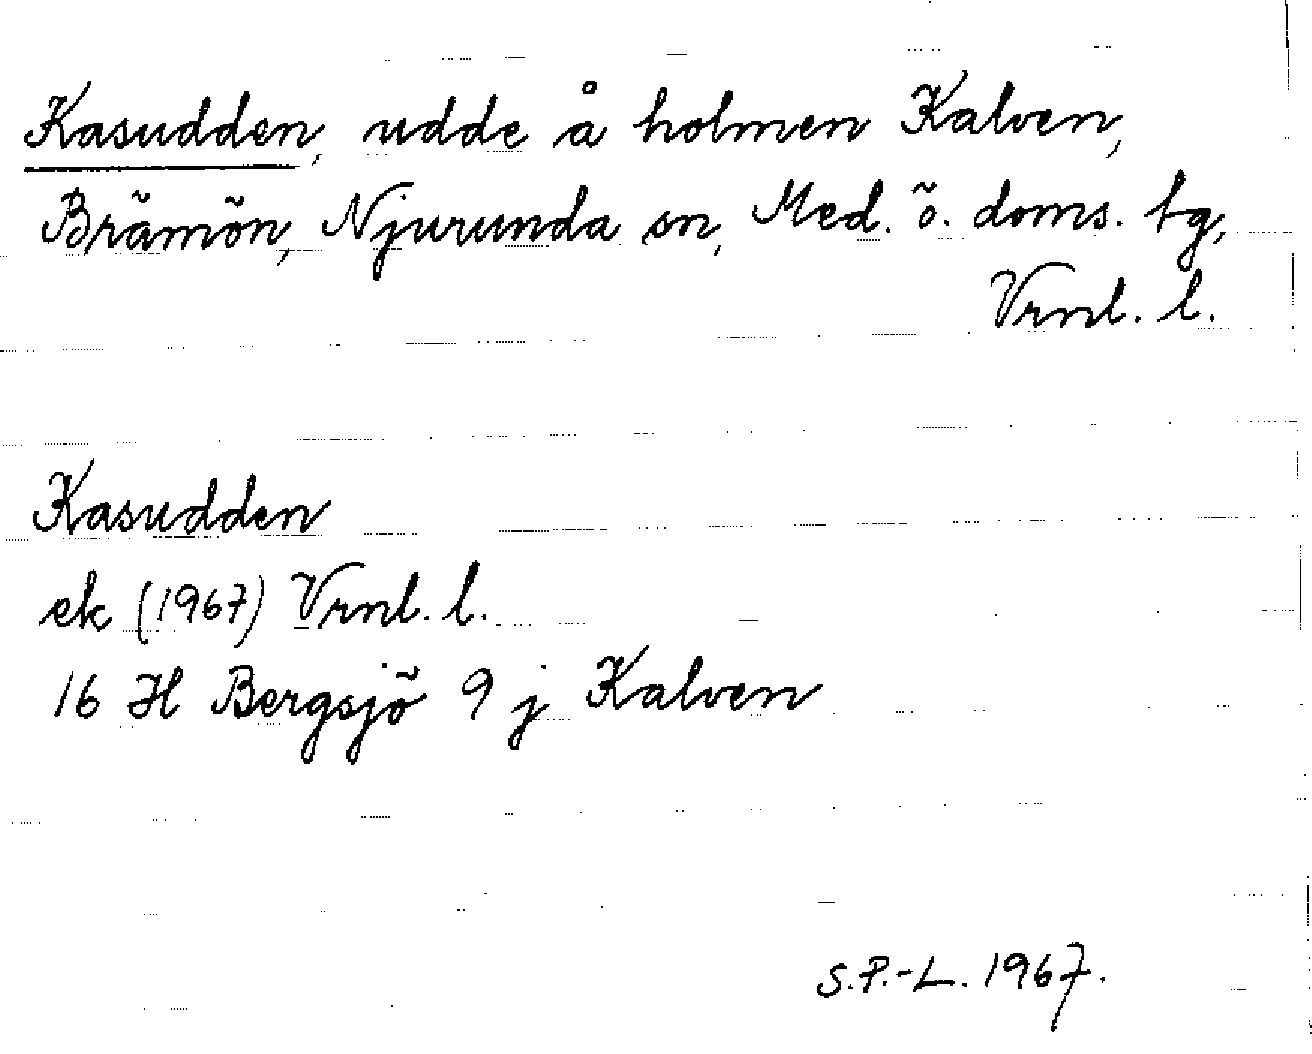 Kasudden, udde å holmen Kalven,
Brämön, Njurunda sn, Med. ö. doms. tg,
Vrnl. l.
Kasudden
ek (1967) Vrnl. l.
16 H Bergsjö 9 j Kalven
S.P.-L. 1967.